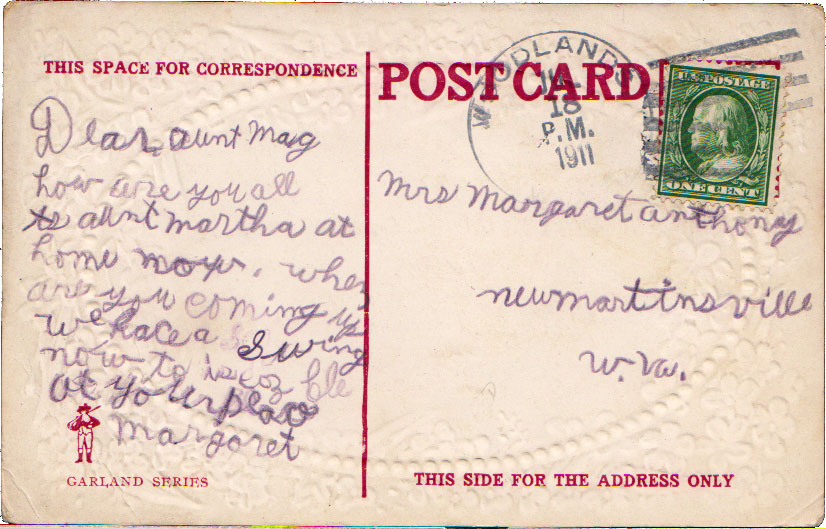 THIS SPACE FOR CORRESPONDENCE
Dear aunt mag
how are you all
is aunt martha at
home now. when
are you coming up
we hace a Swing
now to is
at your place
margaret
GARLAND SERIES
POST CARD
WOODLANDS
JUL
18
P.M.
1911
U.S. POSTAGE
ONE CENT
Mrs Margaret anthony
newmartinsville
W.Va.
THIS SIDE FOR THE ADDRESS ONLY